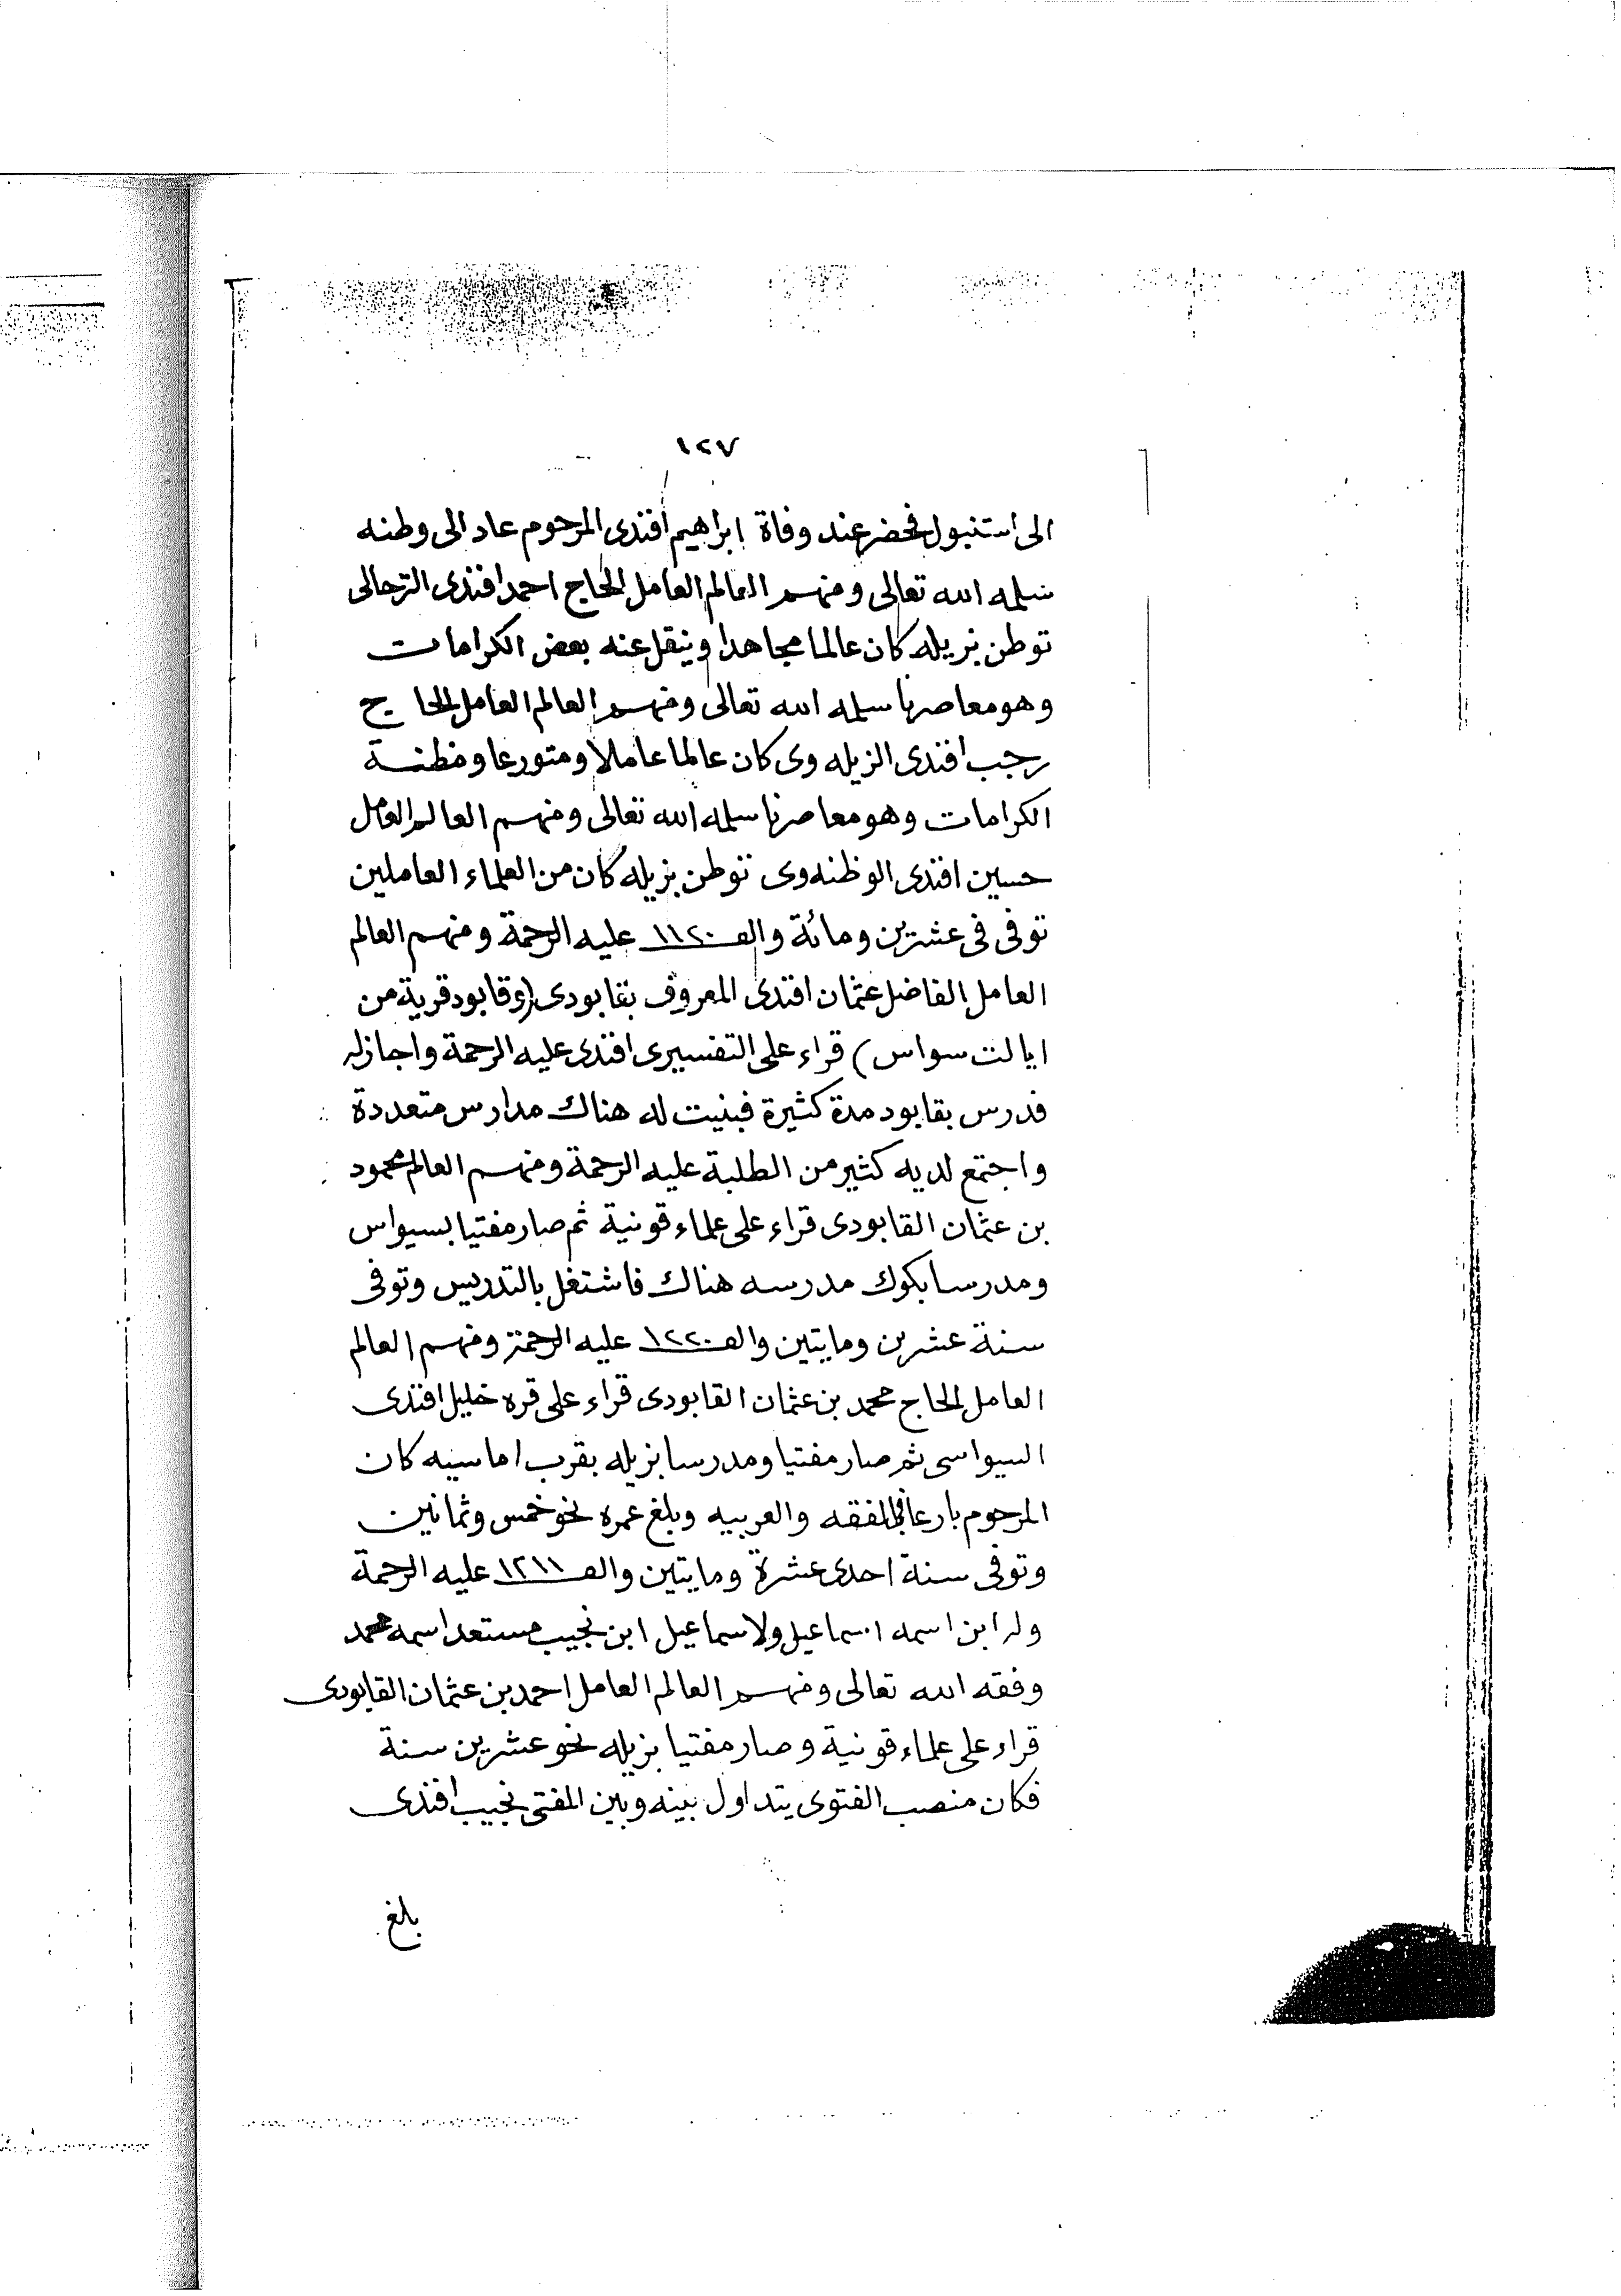 ١٢٧
الى استنبول فحضر عند وفاة ابراهيم افندى المرحوم عاد الى وطنه
سلمه الله تعالى ومنهم العالم العامل الحاج احمد افندى الترحالى
توطن بزيله كان عالما مجاهدا وينقل عنه بعض الكرامات
وهو معاصرنا سلمه الله تعالى ومنهم العالم العامل الحاج
رجب افندى الزيله وى كان عالما عاملا ومتورعا ومظنة
الكرامات وهو معاصرنا سلمه الله تعالى ومنهم العالم العامل
حسين افندى الوظنه وى توطن بزيله كان من العلماء العاملين
توفى فى عشرين ومائة والف ١١٢٠ عليه الرحمة ومنهم العالم
العامل الفاضل عثمان افندى المعروف بقابودى (وقابود قرية من
ايالت سواس) قراء على التفسيرى افندى عليه الرحمة واجازله
فدرس بقابود مدة كثيرة فبنيت له هناك مدارس متعددة
واجتمع لديه كثير من الطلبة عليه الرحمة ومنهم العالم محمود
بن عثمان القابودى قراء على علماء قونية ثم صار مفتيا بسيواس
ومدرسا بكوك مدرسه هناك فاشتغل بالتدريس وتوفى
سنة عشرين ومايتين والف ١٢٢٠ عليه الرحمة ومنهم العالم
العامل الحاج محمد بن عثمان القابودى قراء على قره خليل افندى
السيواسى ثم صار مفتيا ومدرسا بزيله بقرب اماسيه كان
المرحوم بارعا فى الفقه والعربيه وبلغ عمره نحو خمس وثمانين
وتوفى سنة احدى عشرة ومايتين والف ١٢١١ عليه الرحمة
وله ابن اسمه اسماعيل ولاسماعيل ابن نجيب مستعد اسمه محمد
وفقه الله تعالى ومنهم العالم العامل احمد بن عثمان القابودى
قراء على علماء قونية وصار مفتيا بزيله نحو عشرين سنة
فكان منصب الفتوى يتداول بينه وبين المفتى نجيب افندى
بلغ